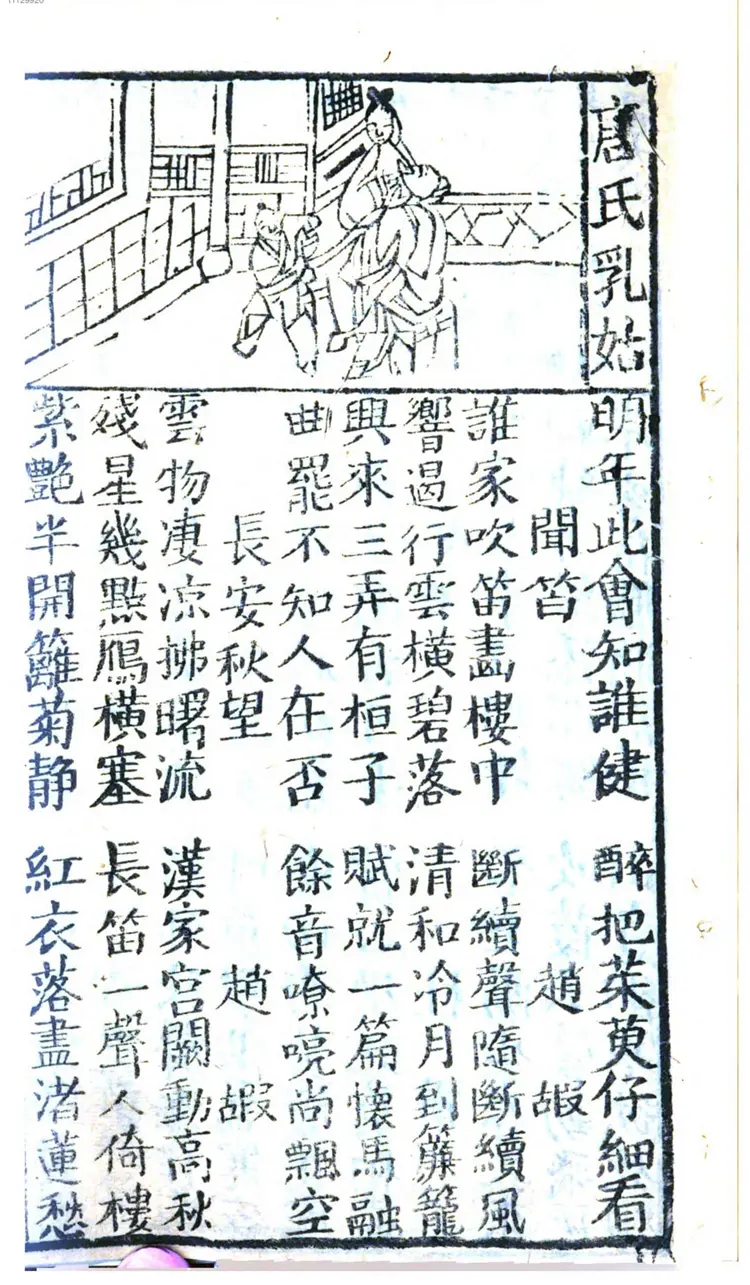 唐氏乳姑
明年此會知誰健 醉把茱萸仔細看
聞笛 趙嘏
誰家吹笛畫樓中 斷續聲隨斷續風
響遏行雲橫碧落 清和冷月到簾籠
興來三弄有桓子 賦就一篇懷馬融
曲罷不知人在否 餘音嘹喨尚飄空
長安秋望 趙嘏
雲物凄凉拂曙流 漢家宮闕動高秋
殘星幾點鴈橫塞 長笛一聲人倚樓
紫艷半開籬菊静 紅衣落盡渚蓮愁